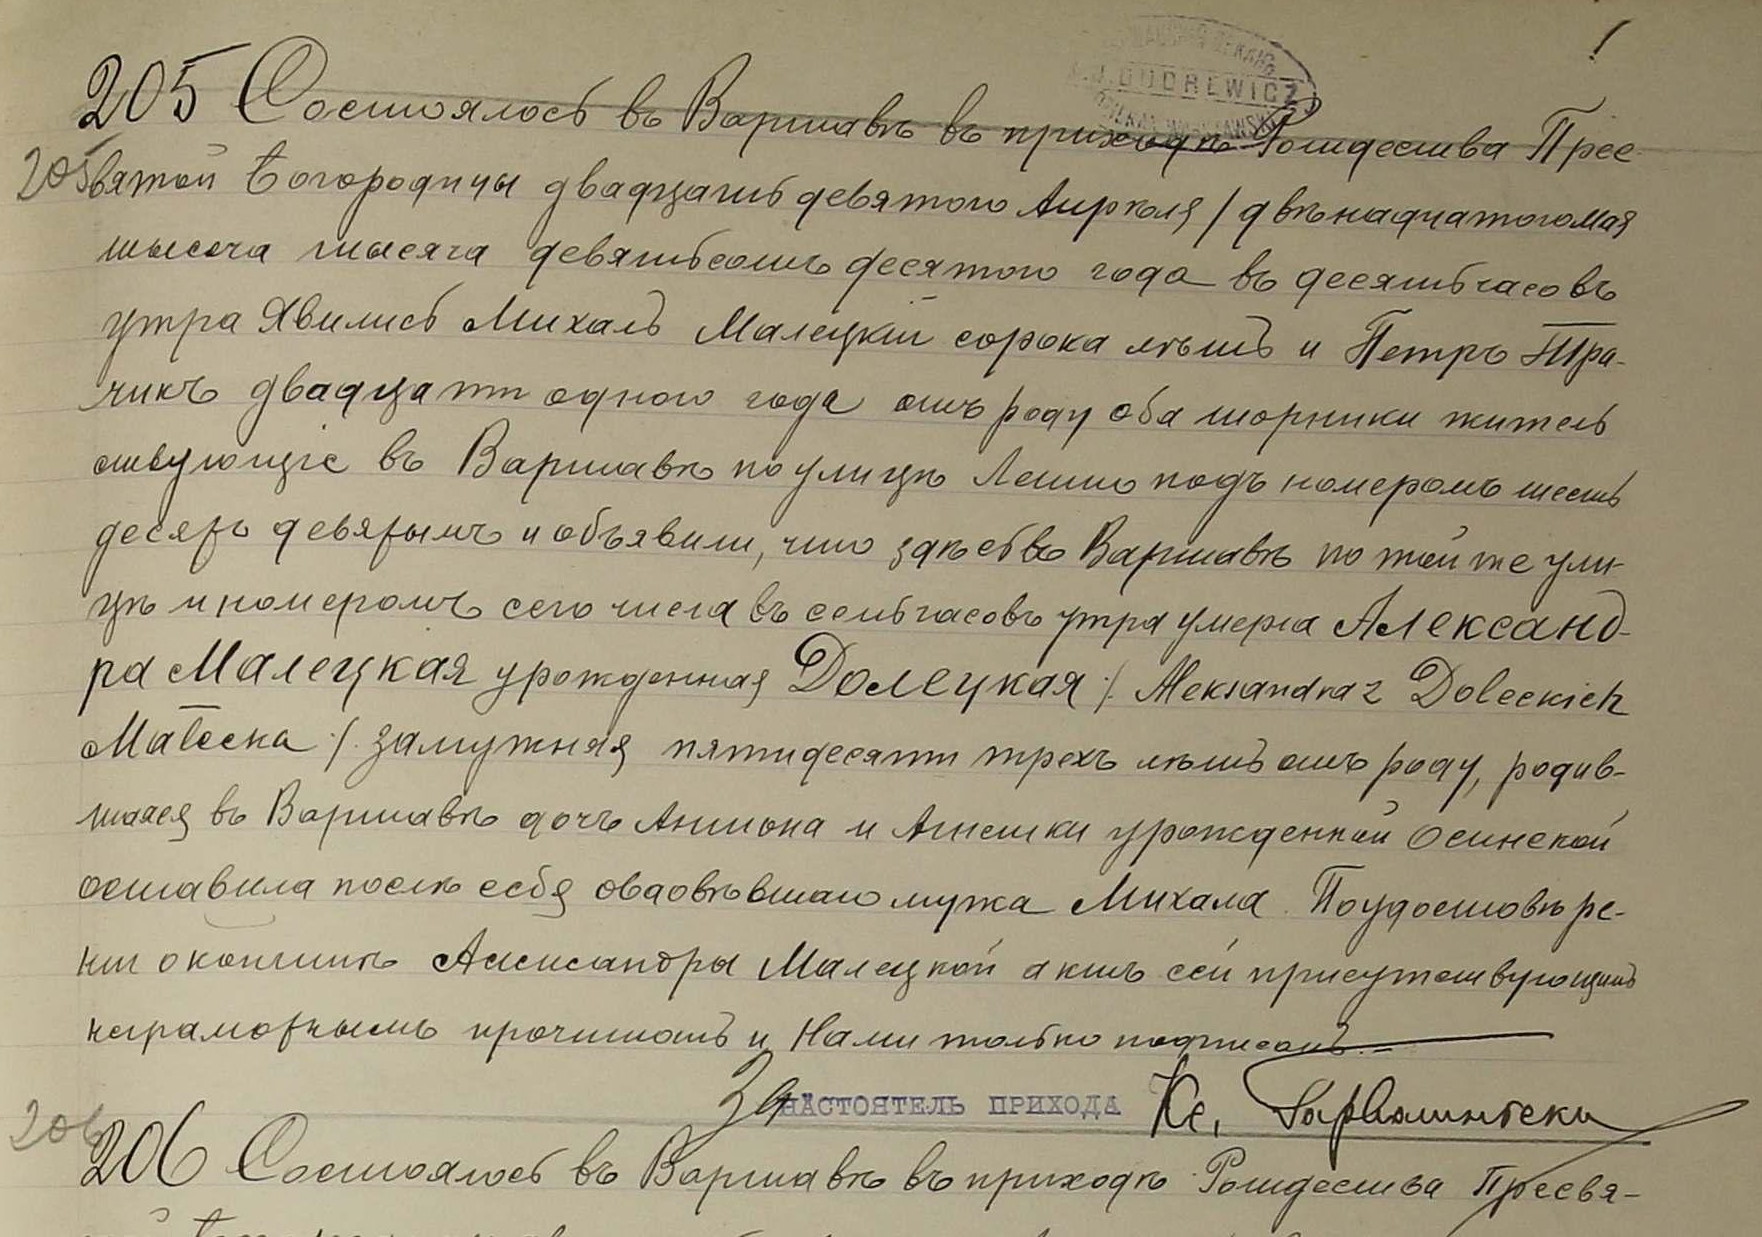 205 Состоялось въ Варшавѣ въ приходѣ Рождества Прес-
205
вятой Богородицы двадцать девятого Апрѣля / двѣнадцатого мая
тысяча тысяча девятьсотъ десятого года въ десять часовъ
утра Явились Михалъ Малецкій сорока лѣтъ и Петръ Тра-
чикъ двадцати одного года отъ роду оба шорники житель
ствующіе въ Варшавѣ по улицѣ Лешно подъ номеромъ шесть
десятъ девятымъ и объявили, что здѣсь въ Варшавѣ по той же ули-
цѣ и номеромъ сего числа въ семь часовъ утра умерла Александ-
ра Малецкая урожденная Долецкая /. Aleksandra z Doleckich
Małecka ./. замужняя пятидесяти трехъ лѣтъ отъ роду, родив-
шаяся въ Варшавѣ дочь Антона и Агнешки урожденной Осинской
оставила послѣ себя овдовѣвшаго мужа Михала. По удостовѣре-
ніи о кончинѣ Александры Малецкой актъ сей присутствующимъ
неграмотнымъ прочитанъ и Нами только подписанъ.-
За НАСТОЯТЕЛЬ ПРИХОДА Кс.
206
206 Состоялось въ Варшавѣ въ приходѣ Рождества Пресвя-